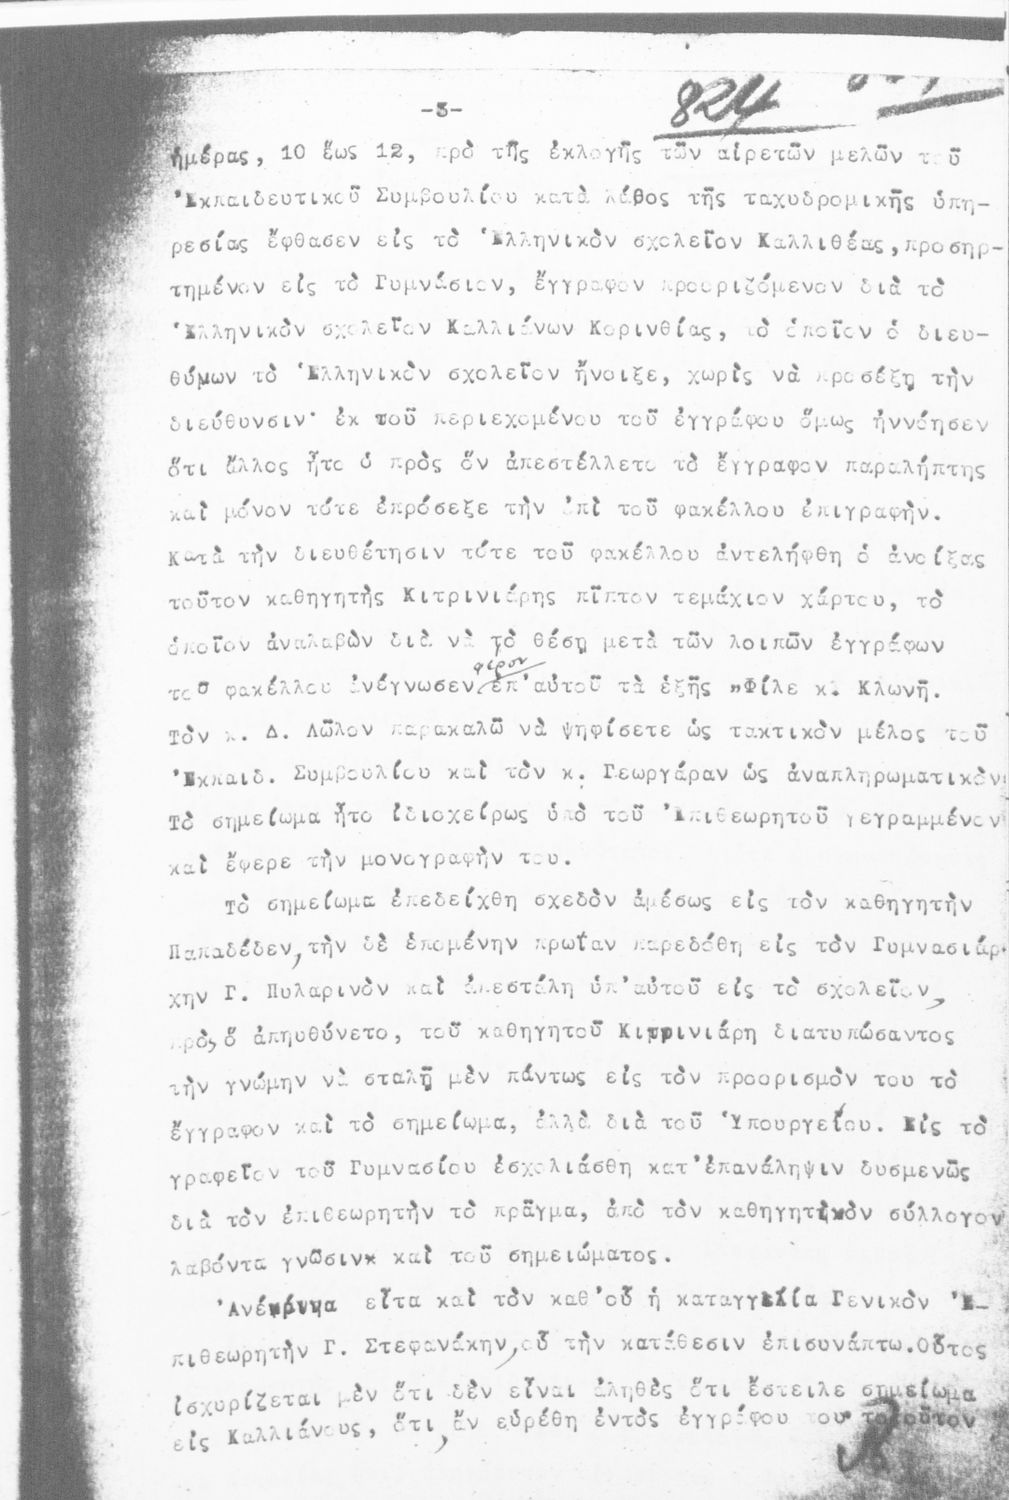 824
-3-
ἡμέρας, 10 ἕως 12, πρὸ τῆς ἐκλογῆς τῶν αἱρετῶν μελῶν τοῦ
Ἐκπαιδευτικοῦ Συμβουλίου κατὰ λάθος τῆς ταχυδρομικῆς ὑπη-
ρεσίας ἔφθασεν εἰς τὸ Ἑλληνικὸν σχολεῖον Καλλιθέας, προσηρ-
τημένον εἰς τὸ Γυμνάσιον, ἔγγραφον προοριζόμενον διὰ τὸ
Ἑλληνικὸν σχολεῖον Καλλιάνων Κορινθίας, τὸ ὁποῖον ὁ διευ-
θύνων τὸ Ἑλληνικὸν σχολεῖον ἤνοιξε, χωρὶς νὰ προσέξῃ τὴν
διεύθυνσιν· ἐκ τοῦ περιεχομένου τοῦ ἐγγράφου ὅμως ἠννόησεν
ὅτι ἄλλος ἦτο ὁ πρὸς ὅν ἀπεστέλλετο τὸ ἔγγραφον παραλήπτης
καὶ μόνον τότε ἐπρόσεξε τὴν ἐπὶ τοῦ φακέλλου ἐπιγραφὴν.
Κατὰ τὴν διευθέτησιν τότε τοῦ φακέλλου ἀντελήφθη ὁ ἀνοίξας
τοῦτον καθηγητὴς Κιτρινιάρης πῖπτον τεμάχιον χάρτου, τὸ
ὁποῖον ἀναλαβὼν διὰ νὰ τὸ θέσῃ μετὰ τῶν λοιπῶν ἐγγράφων
φέρον
τοῦ φακέλλου ἀνέγνωσεν ἐπ'αὐτοῦ τὰ ἑξῆς "Φίλε κ. Κλωνῆ.
Τὸν κ. Δ. Λῶλον παρακαλῶ νὰ ψηφίσετε ὡς τακτικὸν μέλος τοῦ
Ἐκπαιδ. Συμβουλίου καὶ τὸν κ. Γεωργάραν ὡς ἀναπληρωματικὸν
Τὸ σημείωμα ἦτο ἰδιοχείρως ὑπὸ τοῦ Ἐπιθεωρητοῦ γεγραμμένον
καὶ ἔφερε τὴν μονογραφὴν του.
Τὸ σημείωμα ἐπεδείχθη σχεδὸν ἀμέσως εἰς τὸν καθηγητὴν
Παπαδέδεν, τὴν δὲ ἑπομένην πρωΐαν παρεδόθη εἰς τὸν Γυμνασιάρ-
χην Γ. Πυλαρινὸν καὶ ἀπεστάλη ὑπ'αὐτοῦ εἰς τὸ σχολεῖον,
πρὸς ὅ ἀπηυθύνετο, τοῦ καθηγητοῦ Κιτρινιάρη διατυπώσαντος
τὴν γνώμην νὰ σταλῇ μὲν πάντως εἰς τὸν προορισμὸν του τὸ
ἔγγραφον καὶ τὸ σημείωμα, ἀλλὰ διὰ τοῦ Ὑπουργείου. Εἰς τὸ
γραφεῖον τοῦ Γυμνασίου ἐσχολιάσθη κατ'ἐπανάληψιν δυσμενῶς
διὰ τὸν ἐπιθεωρητὴν τὸ πρᾶγμα, ἀπὸ τὸν καθηγητικὸν σύλλογον
λαβόντα γνῶσιν καὶ τοῦ σημειώματος.
Ἀνέκρινα εἶτα καὶ τὸν καθ'οὗ ἡ καταγγελία Γενικὸν Ἐ-
πιθεωρητὴν Γ. Στεφανάκην, οὗ τὴν κατάθεσιν ἐπισυνάπτω. Οὗτος
ἰσχυρίζεται μὲν ὅτι δὲν εἶναι ἀληθὲς ὅτι ἔστειλε σημείωμα
εἰς Καλλιάνους, ὅτι, ἄν εὑρέθη ἐντὸς ἐγγράφου του τοιοῦτον